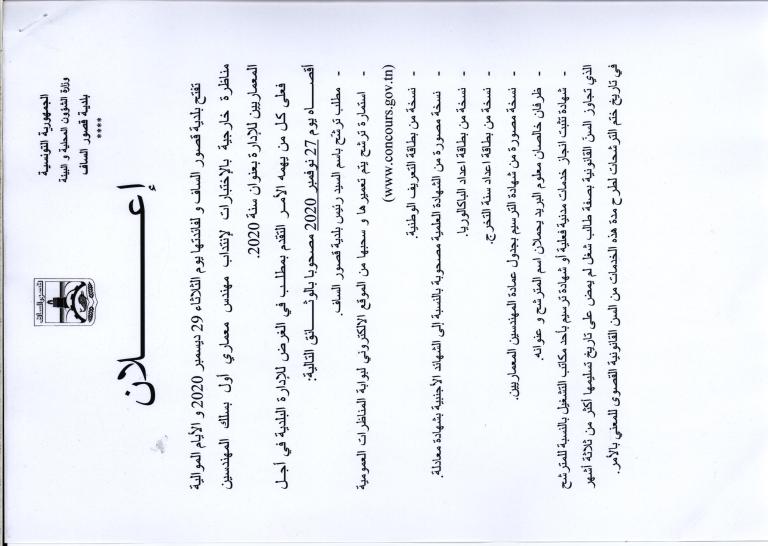 الجمهورية التونسية
وزارة الشؤون المحلية و البيئة
****
بلدية قصور الساف
إعـــــــــلان
تفتح بلدية قصور الساف و لفائدتها يوم الثلاثاء 29 ديسمبر 2020 و الأيام الموالية
مناظرة خارجية بالإختبارات لإنتداب مهندس معماري أول بسلك المهندسين
المعماريين للإدارة بعنوان سنة 2020.
فعلى كل من يهمه الأمـر التقدم بمطلـب في الغرض للإدارة البلدية في أجـل
أقصــــاه يوم 27 نوفمبر 2020 مصحوبا بالوثــــائق التالية:
- مطلب ترشح باسم السيد رئيس بلدية قصور الساف.
- استمارة ترشح يتم تعميرها و سحبها من الموقع الالكتروني لبوابة المناظرات العمومية
(www.concours.gov.tn)
- نسخة من بطاقة التعريف الوطنية.
- نسخة مصورة من الشهادة العلمية مصحوبة بالنسبة إلى الشهائد الأجنبية بشهادة معادلة.
- نسخة من بطاقة اعداد الباكالوريا.
- نسخة من بطاقة أعداد سنة التخرج.
- نسخة مصورة من شهادة الترسيم بجدول عمادة المهندسين المعماريين.
- ظرفان خالصان معلوم البريد يحملان اسم المترشح و عنوانه.
- شهادة تثبت انجاز خدمات مدنية فعلية أو شهادة ترسيم بأحد مكاتب التشغيل بالنسبة للمترشح
الذي تجاوز السن القانونية بصفة طالب شغل لم يمض على تاريخ تسليمها أكثر من ثلاثة أشهر
في تاريخ ختم الترشحات لطرح مدة هذه الخدمات من السن القانونية القصوى للمعني بالأمر.